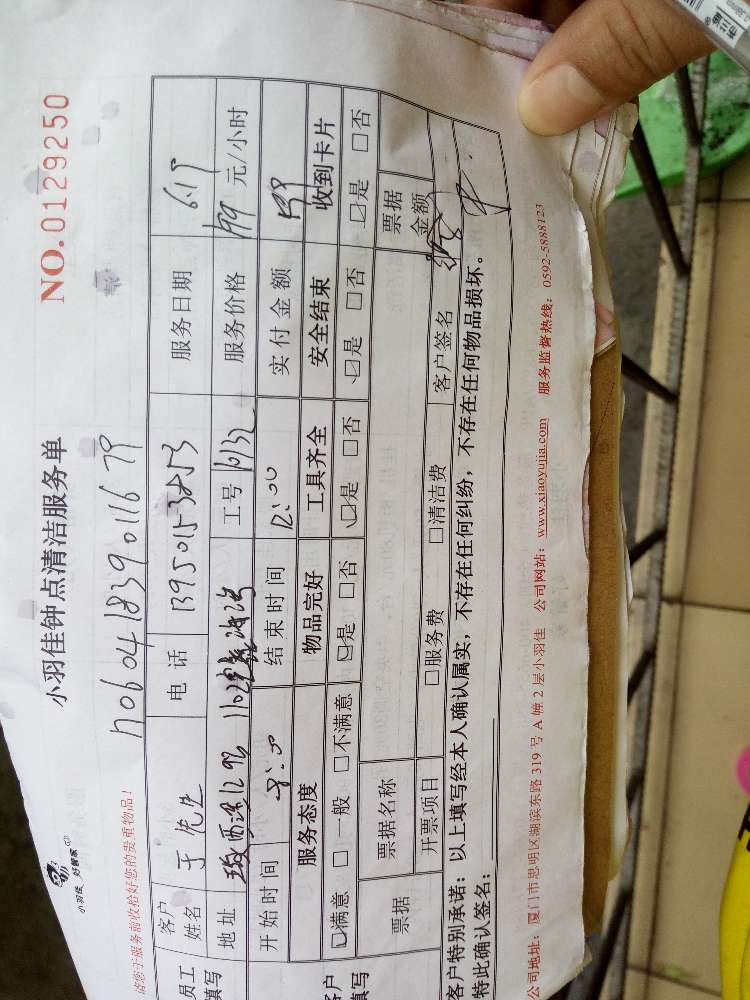 小羽佳 好管家
小羽佳钟点清洁服务单
NO.0129250
请您于服务前收拾好您的贵重物品!
h06041839011679
员工填写
客户姓名 于先生 电话 13950153853 服务日期 6.17
地址 1102 工号 10132 服务价格 199 元/小时
开始时间 结束时间 12:00 实付金额 199
客户填写
服务态度 物品完好 工具齐全 安全结束 收到卡片
☑满意 □一般 □不满意 ☑是 □否 ☑是 □否 ☑是 □否 ☑是 □否
票据 票据名称 票据金额
开票项目 □服务费 □清洁费 客户签名
客户特别承诺:以上填写经本人确认属实,不存在任何纠纷,不存在任何物品损坏。
特此确认签名:
公司地址:厦门市思明区湖滨东路 319 号 A 幢 2 层小羽佳 公司网站:www.xiaoyujia.com 服务监督热线:0592-5888123